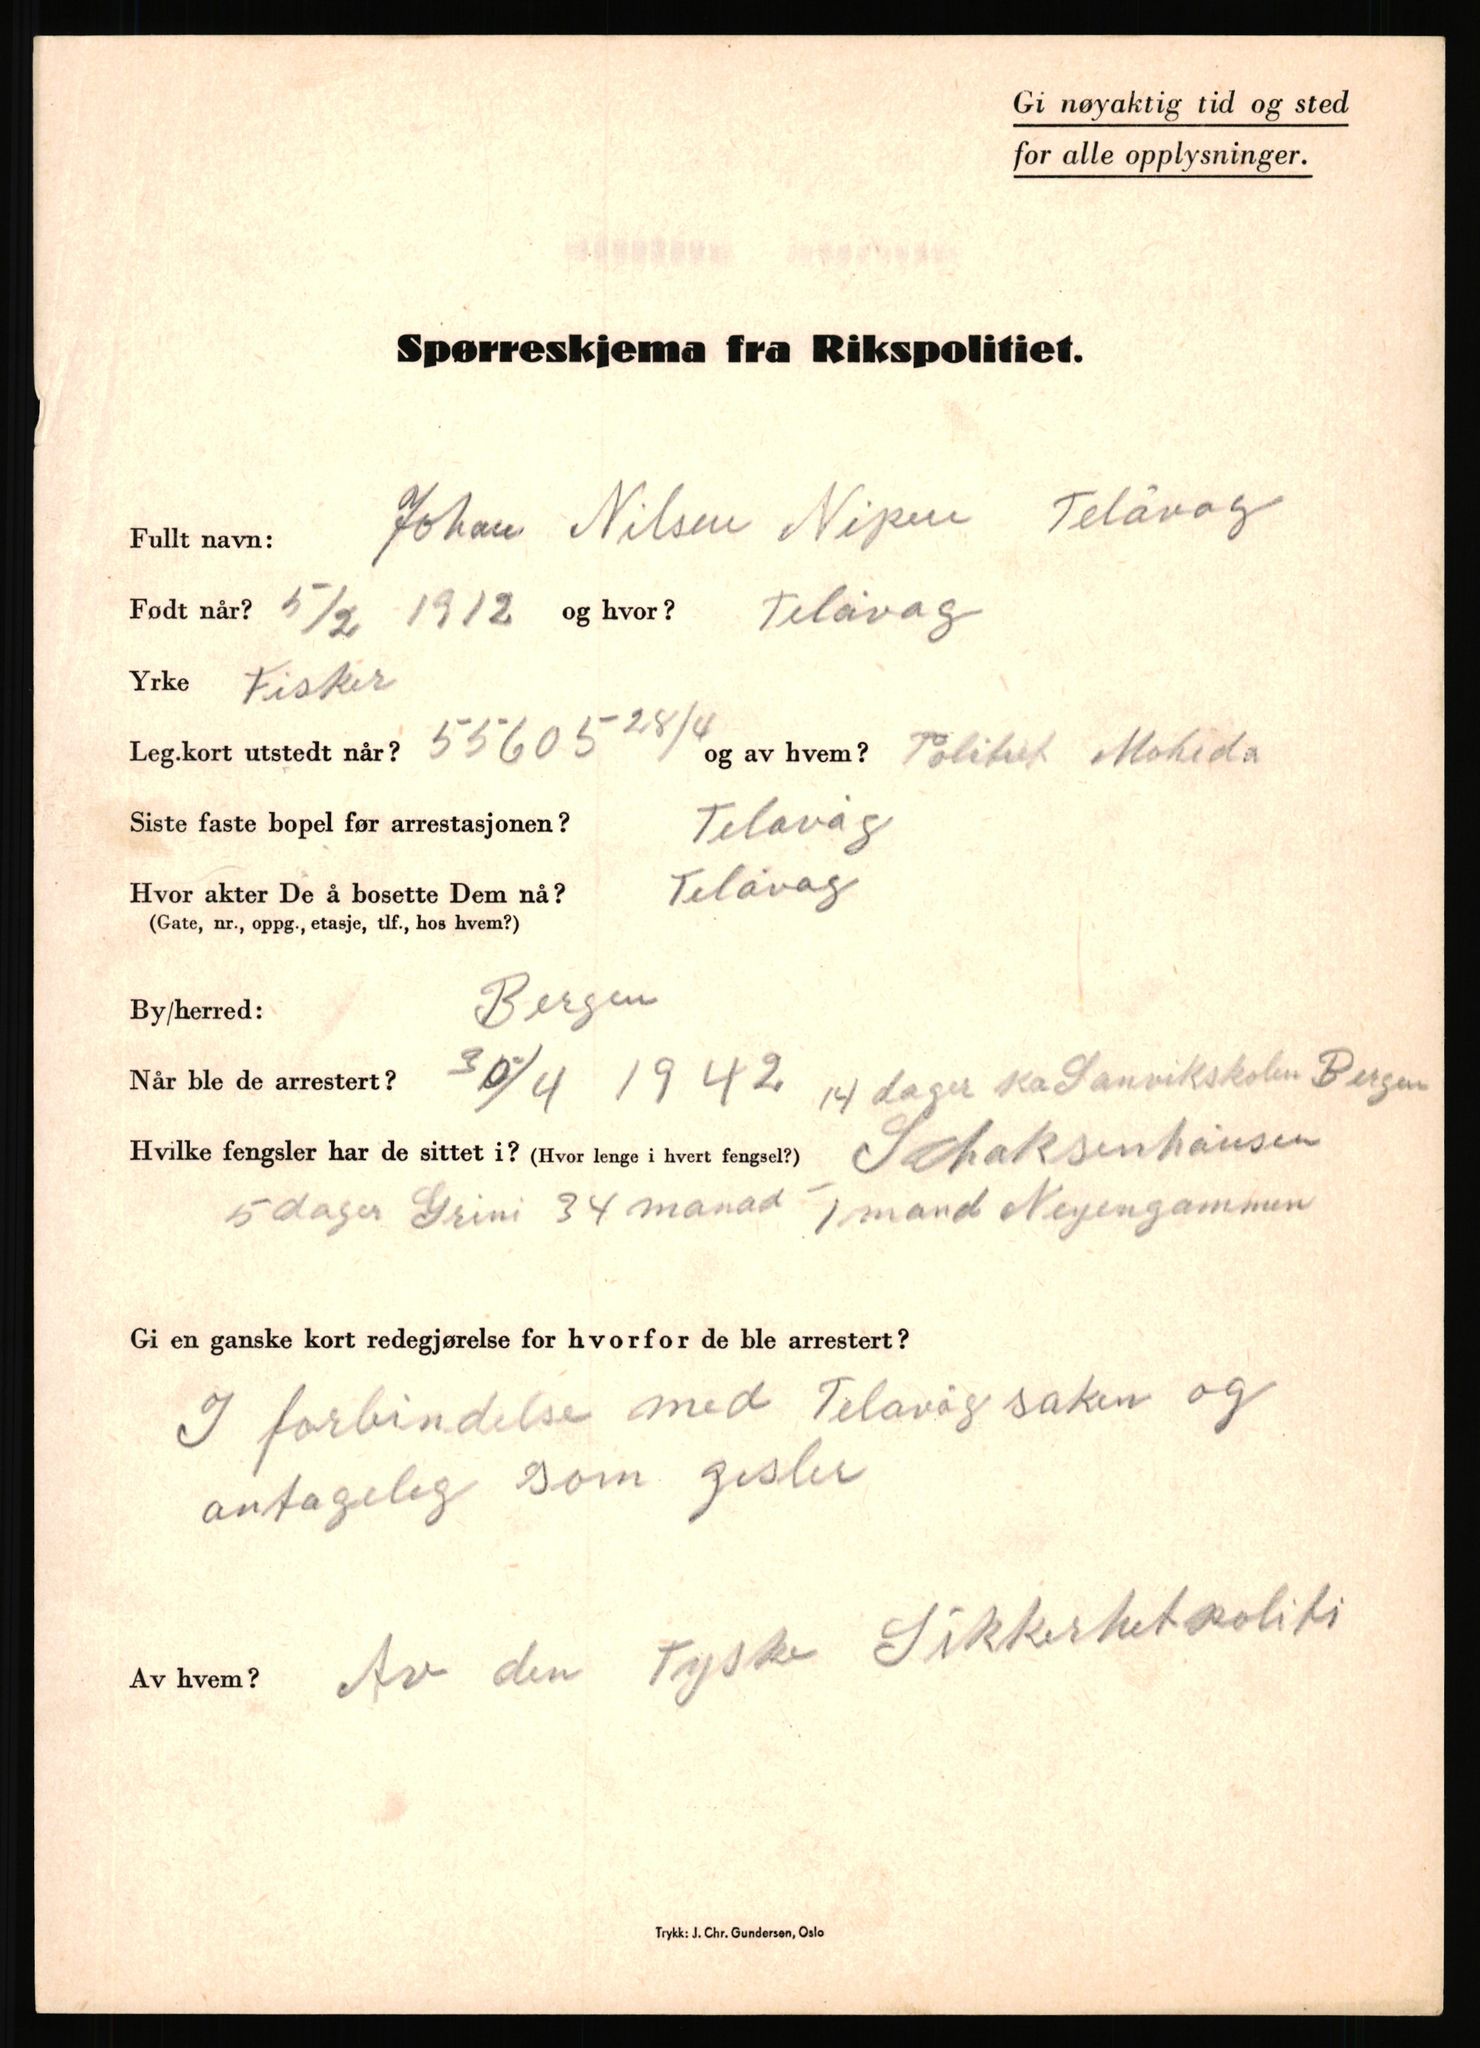 Gi nøyaktig tid og sted
for alle opplysninger.
Spørreskjema fra Rikspolitiet.
Fullt navn: Johan Nilsen Nipen Telåvag
Født når? 5/2 1912 og hvor? Telåvag
Yrke Fisker
Leg.kort utstedt når? 55605 28/4 og av hvem? Politiet Moheda
Siste faste bopel før arrestasjonen? Telavåg
Hvor akter De å bosette Dem nå? Telåvag
(Gate, nr., oppg., etasje, tlf., hos hvem?)
By/herred: Bergen
Når ble de arrestert? 30/4 1942 14 dager Bergen
Hvilke fengsler har de sittet i? (Hvor lenge i hvert fengsel?) Schaksenhausen
5 dager Grini 34 manad - 1 mand Neyengammen
Gi en ganske kort redegjørelse for hvorfor de ble arrestert?
I forbindelse med Telavåg saken og
antageleg som gisler
Av hvem? Av den Tyske Sikkerhetspoliti
Trykk: J. Chr. Gundersen, Oslo